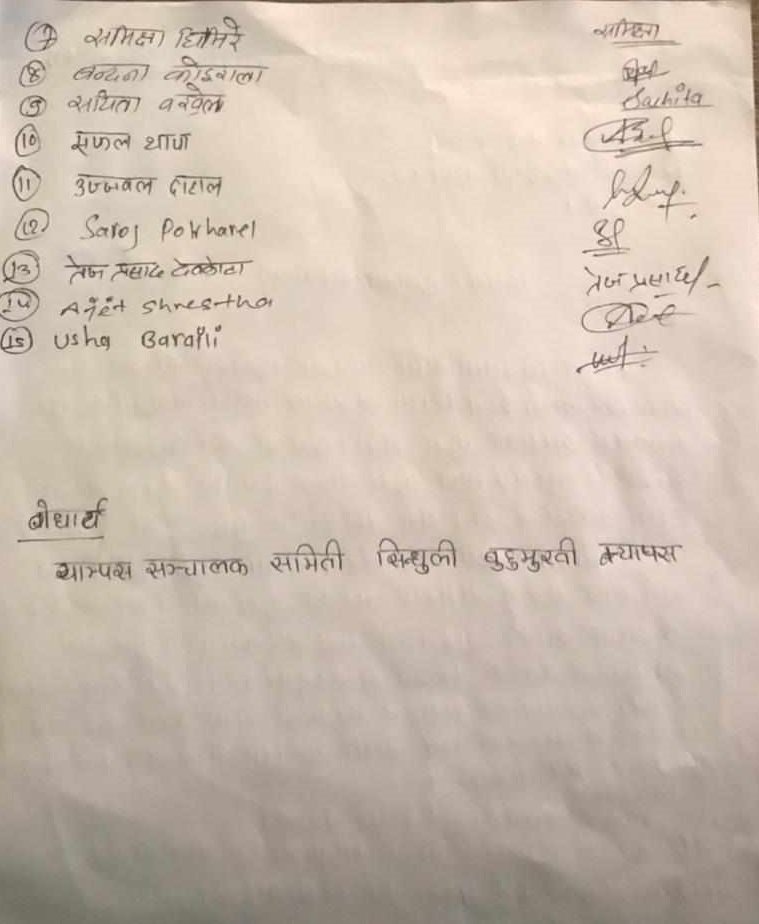 7 समिक्षा घिमिरे समिक्षा
8 बन्दना कोइराला
9 सचिता बखेल Sachita
10 सफल थापा
11 उज्जवल दाहाल
12 Saroj Pokharel
13 तेज प्रसाद देवकोटा तेज प्रसाद
14 Ajit Shrestha
15 Usha Baraili
बोधार्थ
क्याम्पस सञ्चालक समिती सिन्धुली बहुमुखी क्याम्पस